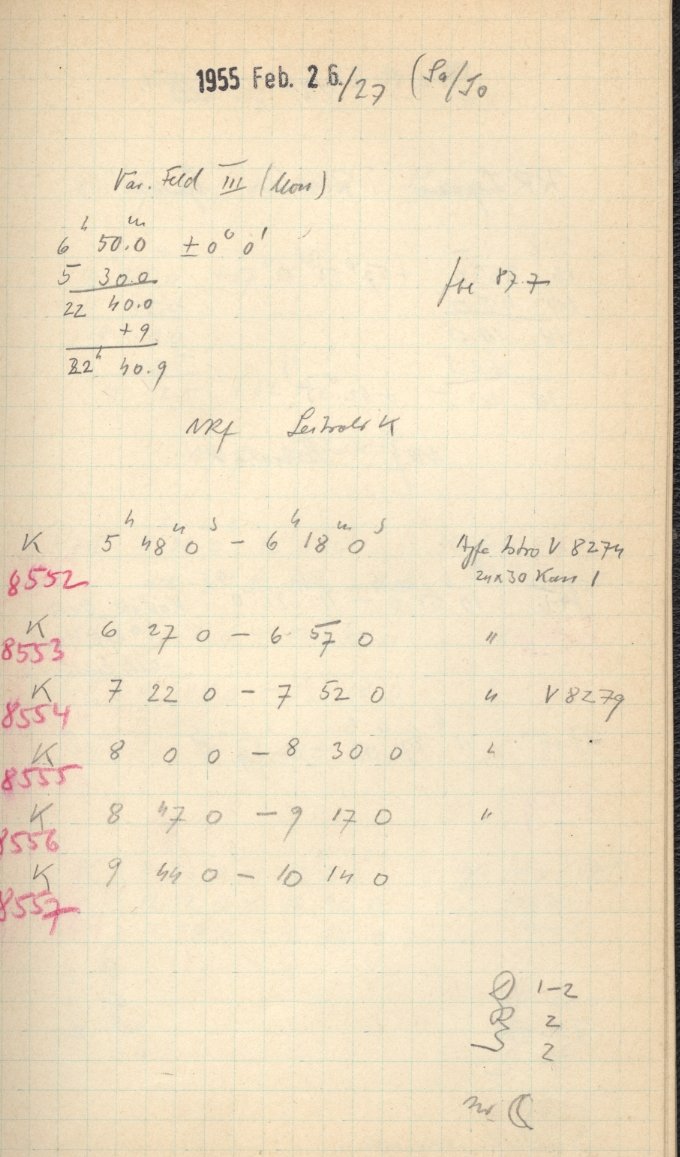 1955 Feb. 26./27 (Sa/So
Var. Feld III (Mon)
6 h 50.0 m ± 0° 0'
5 30.0
22 40.0
+ 9
22 h 40.9
877
K 5 h 48 m 0 s – 6 h 18 m 0 s Agfa Astro V 8274
24x30 Kass 1
8552
K 6 27 0 – 6 57 0 "
8553
K 7 22 0 – 7 52 0 " V 8279
8554
K 8 0 0 – 8 30 0 "
8555
K 8 47 0 – 9 17 0 "
8556
K 9 44 0 – 10 14 0
8557
1–2
R 2
S 2